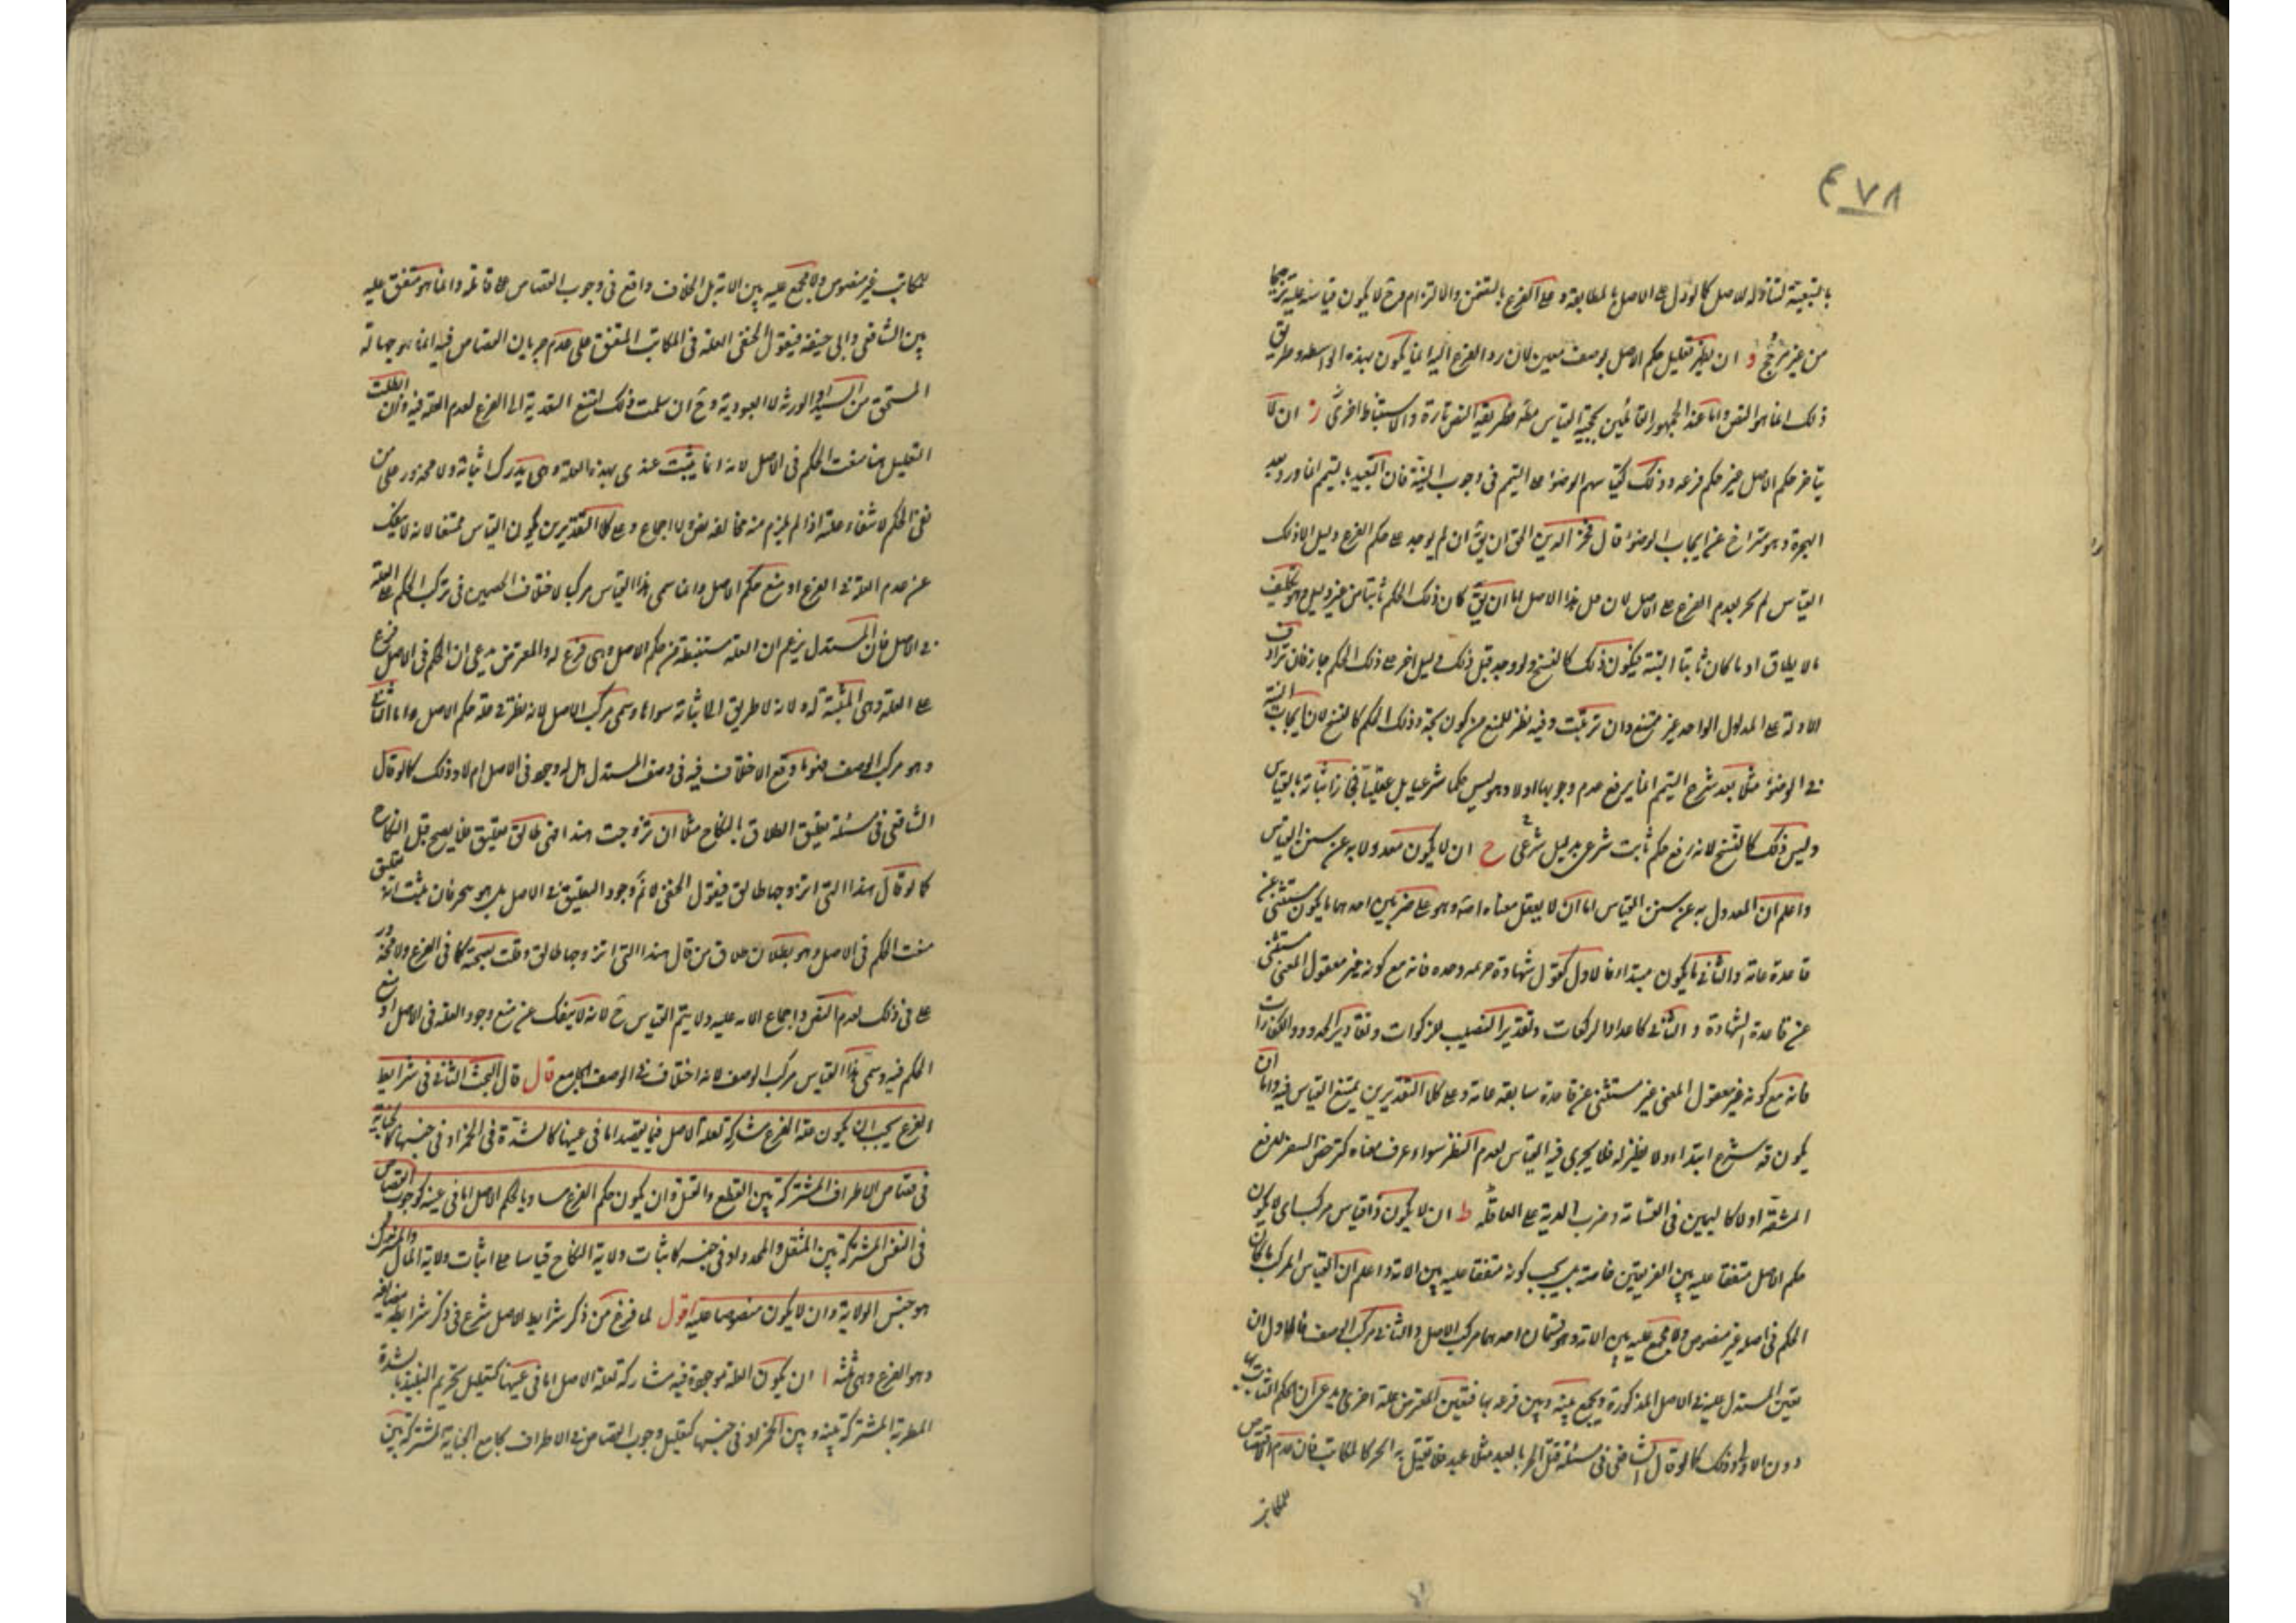 ٤٧٨
بالتبعية لتناوله للاصل كما لو دل على الاصل بالمطابقة و على الفرع بالتضمن والالتزام وح لا يكون قياسه عليه ترجيحا
من غير مرجح و ان يظهر تعليل حكم الاصل بوصف معين لان رد الفرع اليه انما يكون بهذه الواسطه وطريق
ذلك انما هو النص واما عند الجمهور القائلين بحجية القياس مطه فطريقه النص تارة والاستنباط اخرى ز ان لا
يتاخر حكم الاصل عن حكم فرعه وذلك كقياسهم الوضوء على التيمم في وجوب النية فان التعبد بالتيمم انما ورد بعد
الهجرة وهو متراخ عن ايجاب الوضوء قال فخر الدين الحق ان يق ان لم يوجد على حكم الفرع دليل الا ذلك
القياس لم يجز تقدم الفرع على الاصل لان قبل هذا الاصل اما ان يق كان ذلك الحكم ثابتا من غير دليل وهو تكليف
ما لا يطاق او ما كان ثابتا البتة فيكون ذلك كالنسخ ولو وجد قبل ذلك دليل اخر على ذلك الحكم جاز فان ترادف
الادلة على المدلول الواحد غير ممتنع وان ترتبت وفيه نظر للمنع من كون تجدد ذلك الحكم كالنسخ لان ايجاب النية
في الوضوء مثلا بعد شرع التيمم انما يرفع عدم وجوبها اولا وهو ليس حكما شرعيا بل عقليا فجاز اثباته بالقياس
وليس ذلك كالنسخ لانه رفع حكم ثابت شرعي بدليل شرعي ح ان لا يكون معدولا به عن سنن القياس
واعلم ان المعدول به عن سنن القياس اما ان لا يعقل معناه اصه وهو على ضربين احدهما ما يكون مستثنى عن
قاعدة عامة والثاني ما يكون مبتداء فالاول كقبول شهادة خزيمه وحده فانه مع كونه غير معقول المعنى مستثنى
عن قاعدة الشهادة و الثاني كاعداد الركعات وتقدير النصيب للزكوات ومقادير الحدود والكفارات
فانه مع كونه غير معقول المعنى غير مستثنى عن قاعدة سابقه عامة وعلى كلا التقديرين يمتنع القياس فيه واما ان
يكون قد شرع ابتداء ولا نظير له فلا يجرى فيه القياس لعدم النظير سواء عرف معناه كترخص السفر لدفع
المشقة او لا كاليمين في القسامة وضرب الدية على العاقلة ط ان لا يكون ذا قياس مركب اى لا يكون
حكم الاصل متفقا عليه بين الفريقين خاصة بل يجب كونه متفقا عليه بين الامة واعلم ان القياس المركب ما كان
الحكم في اصله غير منصوص ولا مجمع عليه بين الامة وهو قسمان احدهما مركب الاصل والثاني مركب الوصف فالاول ان
يعين المستدل علية في الاصل المذكورة ويجمع بينه وبين فرعه بها فيعين المعترض علة اخرى ويدعى ان الحكم الثابت بها
دون الاولى وذلك كما لو قال الشافعى في مسئلة قتل الحر بالعبد مثلا عبد فلا يقتل به الحر كالمكاتب فان عدم القصاص
للمكاتب
للمكاتب غير منصوص ولا مجمع عليه بين الامة بل الخلاف واقع في وجوب القصاص على قاتله وانما هو متفق عليه
بين الشافعى وابى حنيفة فيقول الحنفى العلة في المكاتب المتفق على عدم جريان القصاص فيه انما هو جهالة
المستحق من السيد او الورثة لا العبودية وح ان سلمت ذلك امتنع التعدية الى الفرع لعدم العلة فيه وان ابطلت
التعليل بها منعت الحكم في الاصل لانه انما يثبت عندى بهذه العلة وهى مدرك اثباته ولا محذور على من
نفى الحكم لانتفاء علته اذا لم يلزم منه مخالفه نص ولا اجماع وعلى كلا التقديرين يكون القياس ممتنعا لانه لا ينفك
عن عدم العلة في الفرع او منع حكم الاصل وانما سمى هذا القياس مركبا لاختلاف الخصمين في تركب الحكم على العلة
في الاصل فان المستدل يزعم ان العلة مستنبطة من حكم الاصل وهى فرع له والمعترض يدعى ان الحكم في الاصل فرع
على العلة وهى المثبتة له ولانه لا طريق الى اثباته سواها وسمى مركب الاصل لانه نظر في علة حكم الاصل واما الثانى
وهو مركب الوصف فهو ما وقع الاختلاف فيه في وصف المستدل هل له وجود في الاصل ام لا وذلك كما لو قال
الشافعى في مسئلة تعليق الطلاق بالنكاح مثلا ان تزوجت هندا فهى طالق تعليق فلا يصح قبل النكاح
كما لو قال هند التى اتزوجها طالق فيقول الحنفى لا نم وجود التعليق في الاصل بل هو تنجيز فان ثبت انه تعليق
منعت الحكم في الاصل وهو بطلان طلاق من قال هند التى اتزوجها طالق وقلت بصحته كما في الفرع ولا محذور
على في ذلك لعدم النص واجماع الامه عليه ولا يتم القياس ح لانه لا ينفك عن منع وجود العلة في الاصل او منع
الحكم فيه وسمى هذا القياس مركب الوصف لانه اختلاف في الوصف الجامع قال قال البحث الثانى في شرايط
الفرع يجب ان يكون علة الفرع مشاركة لعلة الاصل فيما يقصد اما في عينها كالشدة في الخمر او في جنسها كالجناية
في قصاص الاطراف المشتركة بين القطع والقتل وان يكون حكم الفرع مساويا لحكم الاصل اما في عينه كوجوب القصاص
في النفس المشتركة بين المثقل والمحدد او في جنسه كاثبات ولاية النكاح قياسا على اثبات ولاية المال والمشترك
هو جنس الولاية وان لا يكون منصوصا عليه اقول لما فرغ من ذكر شرايط الاصل شرع في ذكر شرايط مضايفه
وهو الفرع وهى ثلثة ا ان يكون العلة موجودة فيه مشاركة لعلة الاصل اما في عينها كتعليل تحريم النبيذ بالشدة
المطربة المشتركة بينه وبين الخمر او في جنسها كتعليل وجوب القصاص في الاطراف بجامع الجناية المشتركة بين